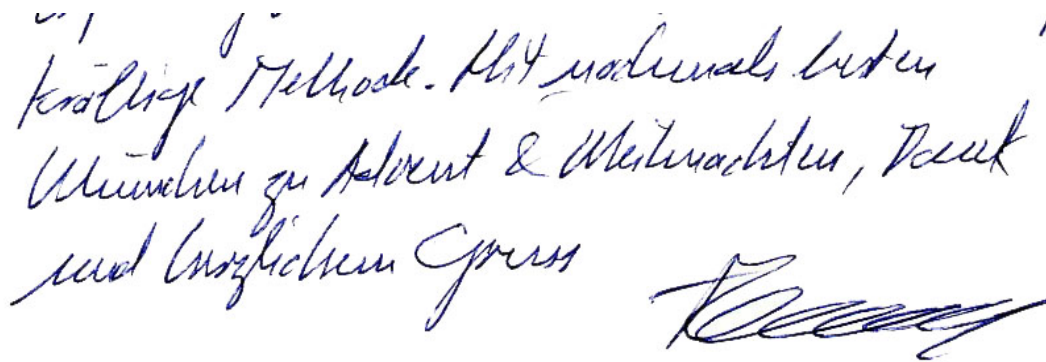 kräftige Methode. Mit nochmals besten
Wünschen zu Advent & Weihnachten, Dank
und herzlichem Gruss